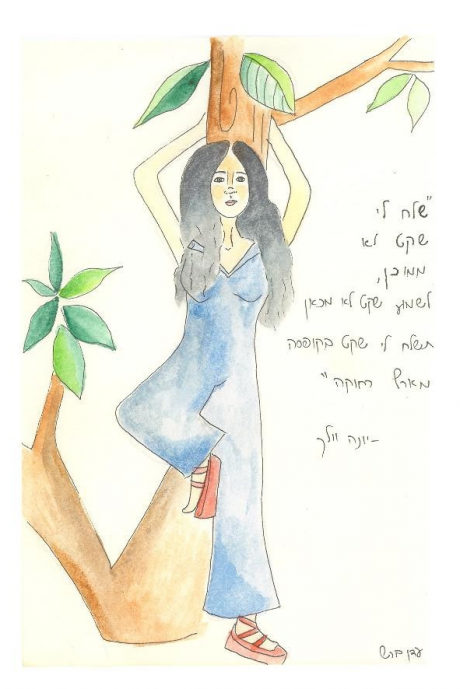 "שלח לי
שקט לא
ממוכן,
לשמוע שקט לא מכאן
תשלח לי שקט בקופסה
מארץ רחוקה"
-יונה וולך
עדן ברש